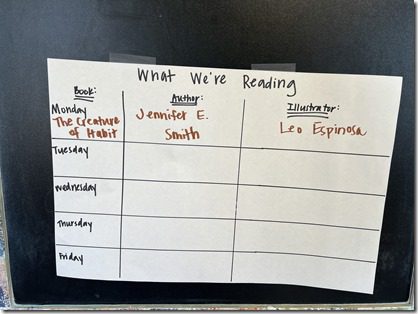 What We're Reading
Book: Author: Illustrator:
Monday
The Creature of Habit
Jennifer E. Smith
Leo Espinosa
Tuesday
Wednesday
Thursday
Friday